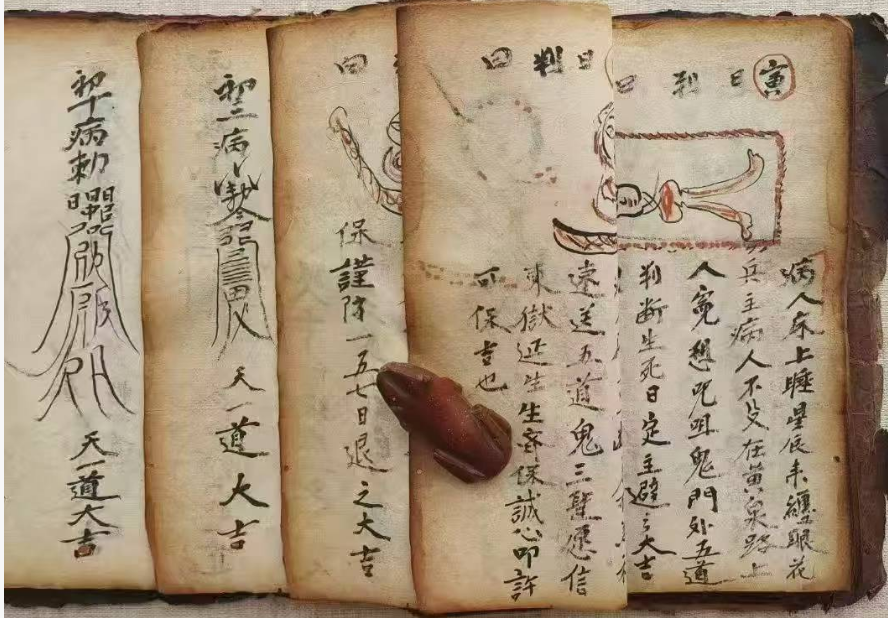 寅日判曰
病人床上睡星辰未纏眼花
兵主病人不安在黃泉路上
人冤想咒咀鬼門外五道
判斷生死日定主避之大吉
日判曰
遠送五道鬼三聖愿信
東獄延生生斉保誠心叩許
可保吉也
曰
保謹防一五七日退之大吉
初二病
天一道大吉
病勅
天一道大吉